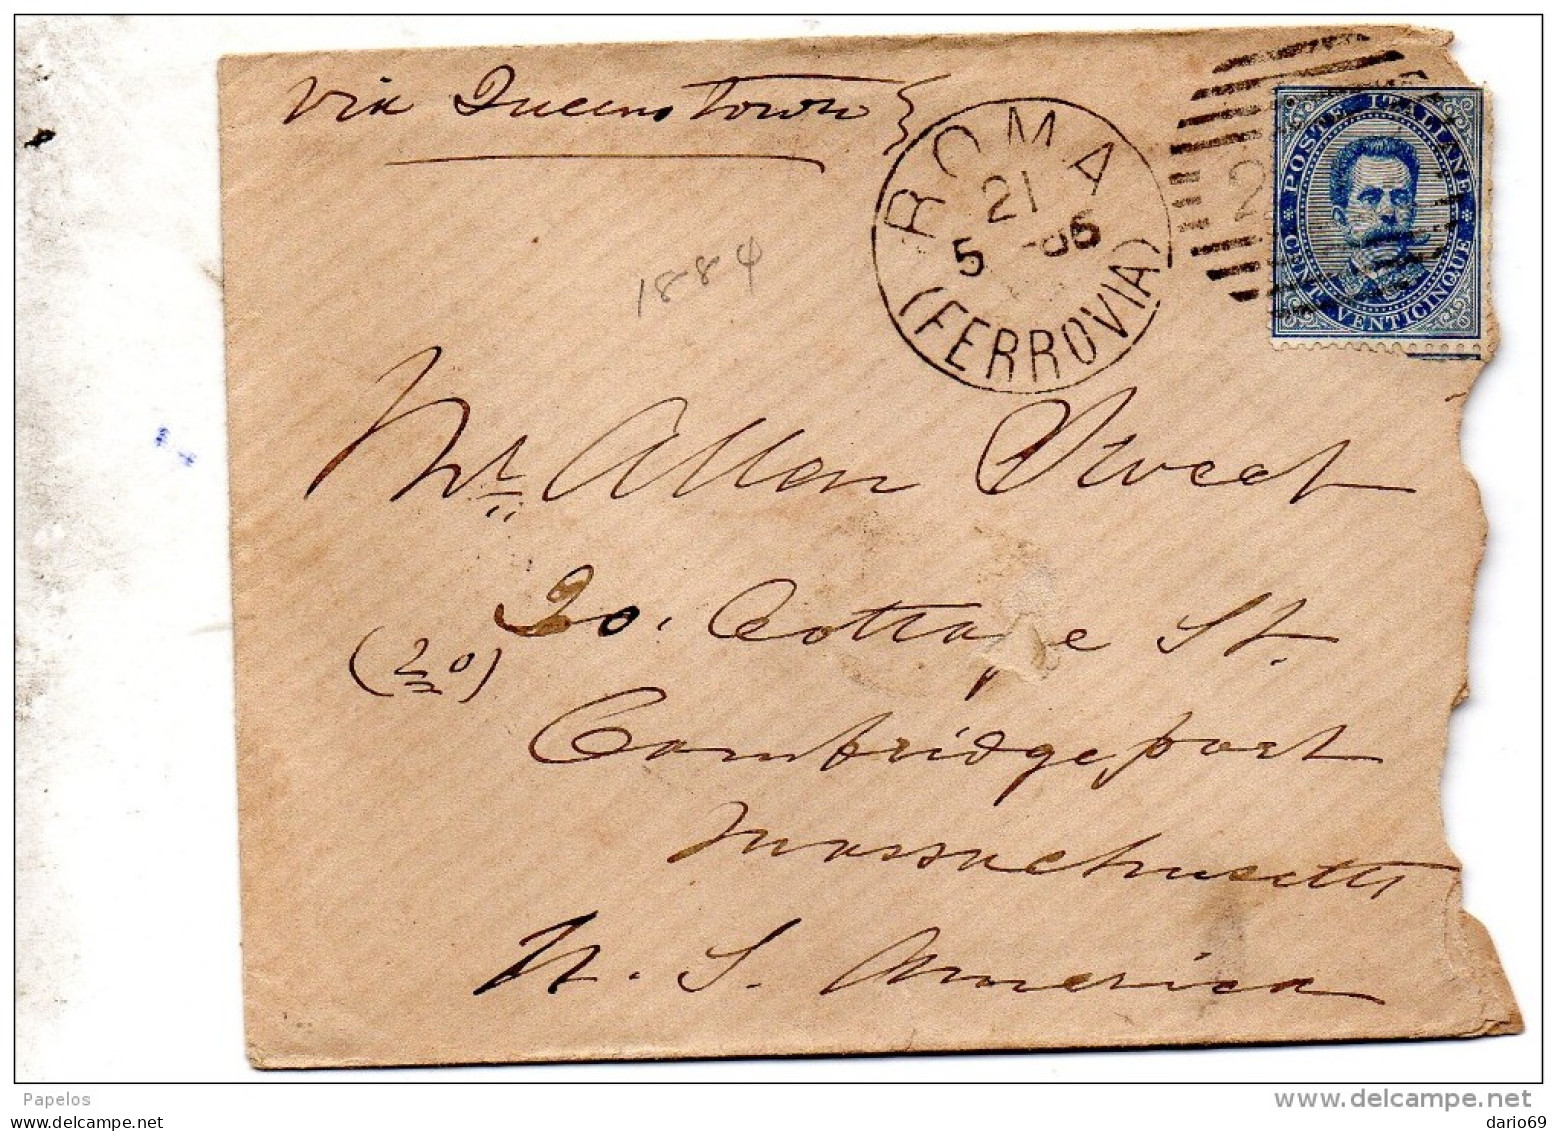 via Queenstown
ROMA
21
5 -86
(FERROVIA)
2
POSTE ITALIANE
CENT. VENTICINQUE
1884
Mr. Allen Sweet
20. Cottage St.
(20)
Cambridgeport
Massachusetts
U. S. America
Papelos
www.delcampe.net
delcampe.net
dario69